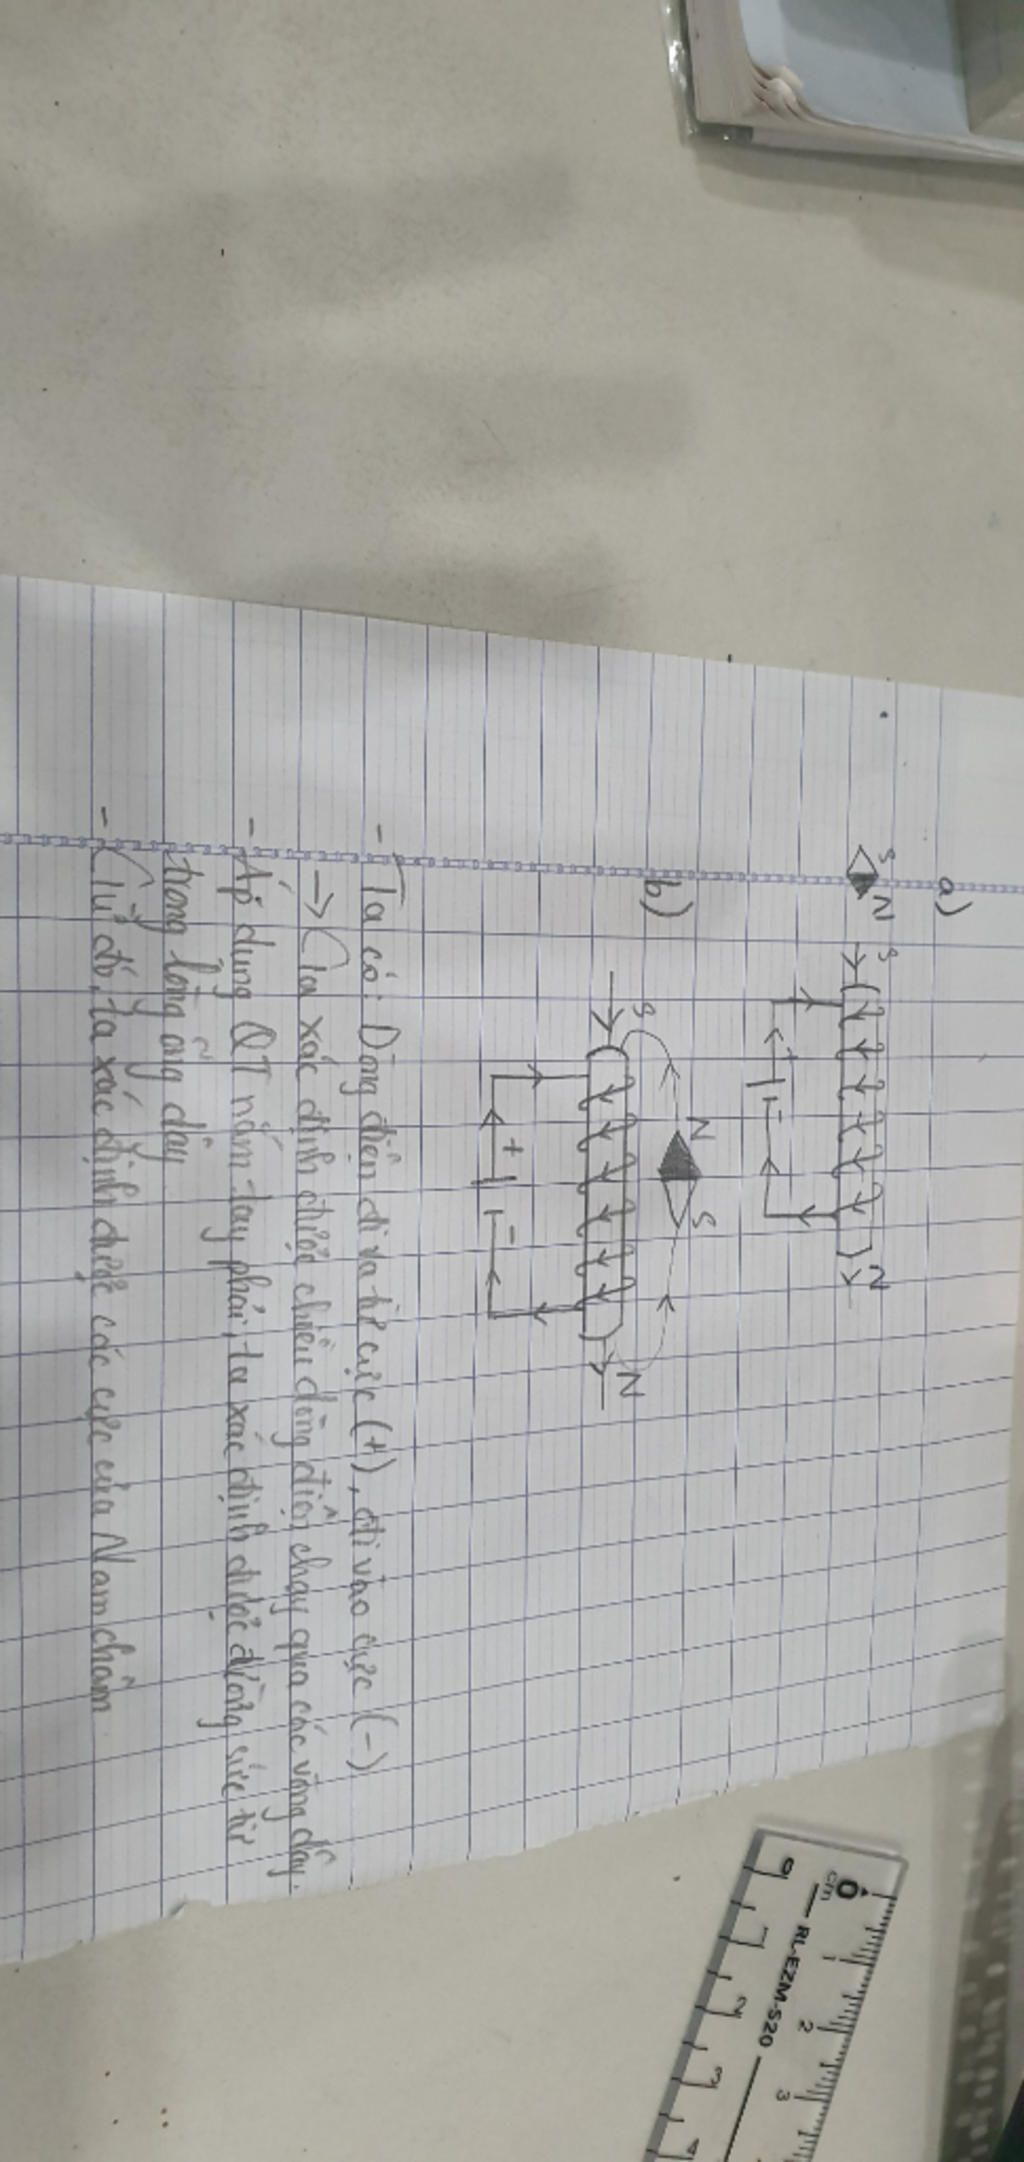 a)
S N S N
+ -
b)
S N S N
+ -
- Ta có: Dòng điện đi ra từ cực (+), đi vào cực (-)
→ Ta xác định được chiều dòng điện chạy qua các vòng dây.
- Áp dụng QT nắm tay phải, ta xác định được đường sức từ
trong lòng ống dây
- Từ đó, ta xác định được các cực của Nam châm
0 1 2 3
cm
RL-EZM-S20
0 1 2 3 4